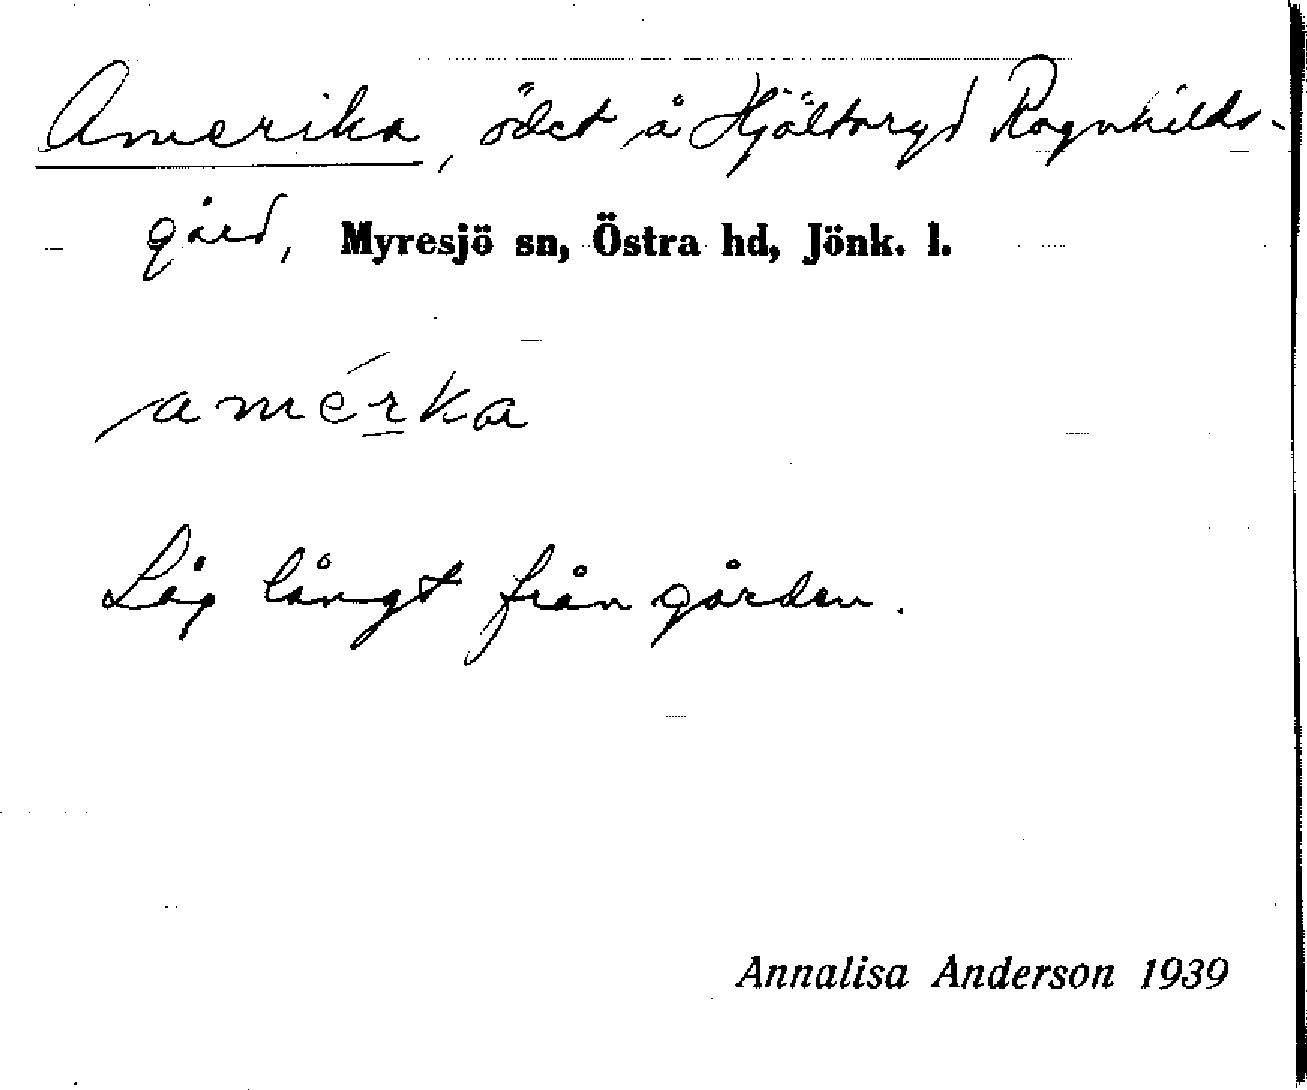 Amerika, ödet å Hjältaryd Ragnhilds-
gård, Myresjö sn, Östra hd, Jönk. l.
amérka
Låg långt från gården.
Annalisa Anderson 1939